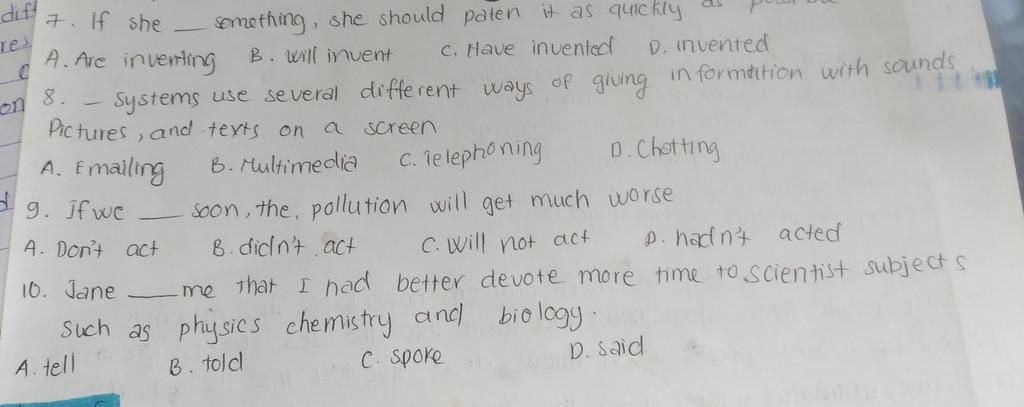 diff
res
on
7. If she __ something, she should paten it as quickly as
A. Are inventing B. will invent C. Have invented D. invented
8. _ systems use several different ways of giving information with sounds
Pictures, and texts on a screen
A. Emailing B. Multimedia C. Telephoning D. Chatting
9. If we __ soon, the, pollution will get much worse
A. Don't act B. didn't act C. will not act D. hadn't acted
10. Jane __ me that I had better devote more time to scientist subjects
Such as physics chemistry and biology.
A. tell B. told C. spoke D. said